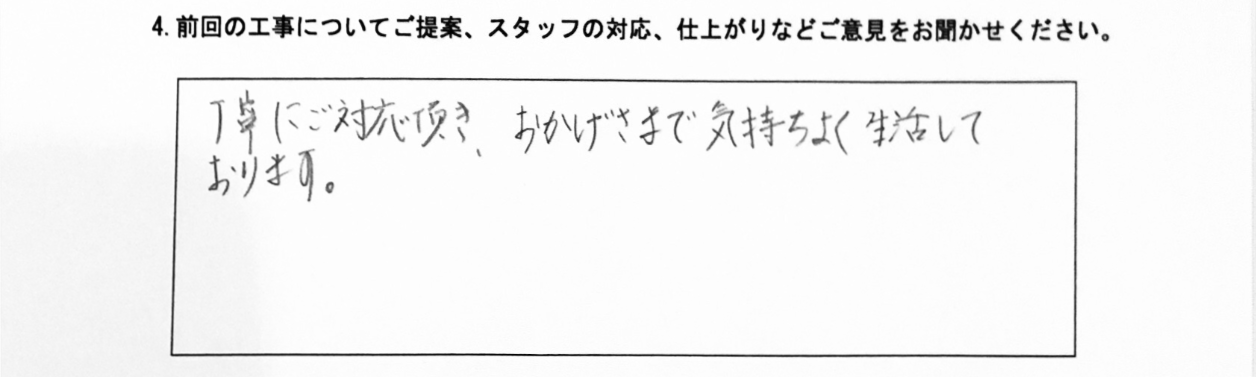 4. 前回の工事についてご提案、スタッフの対応、仕上がりなどご意見をお聞かせください。
丁寧にご対応頂き、おかげさまで気持ちよく生活して
おります。